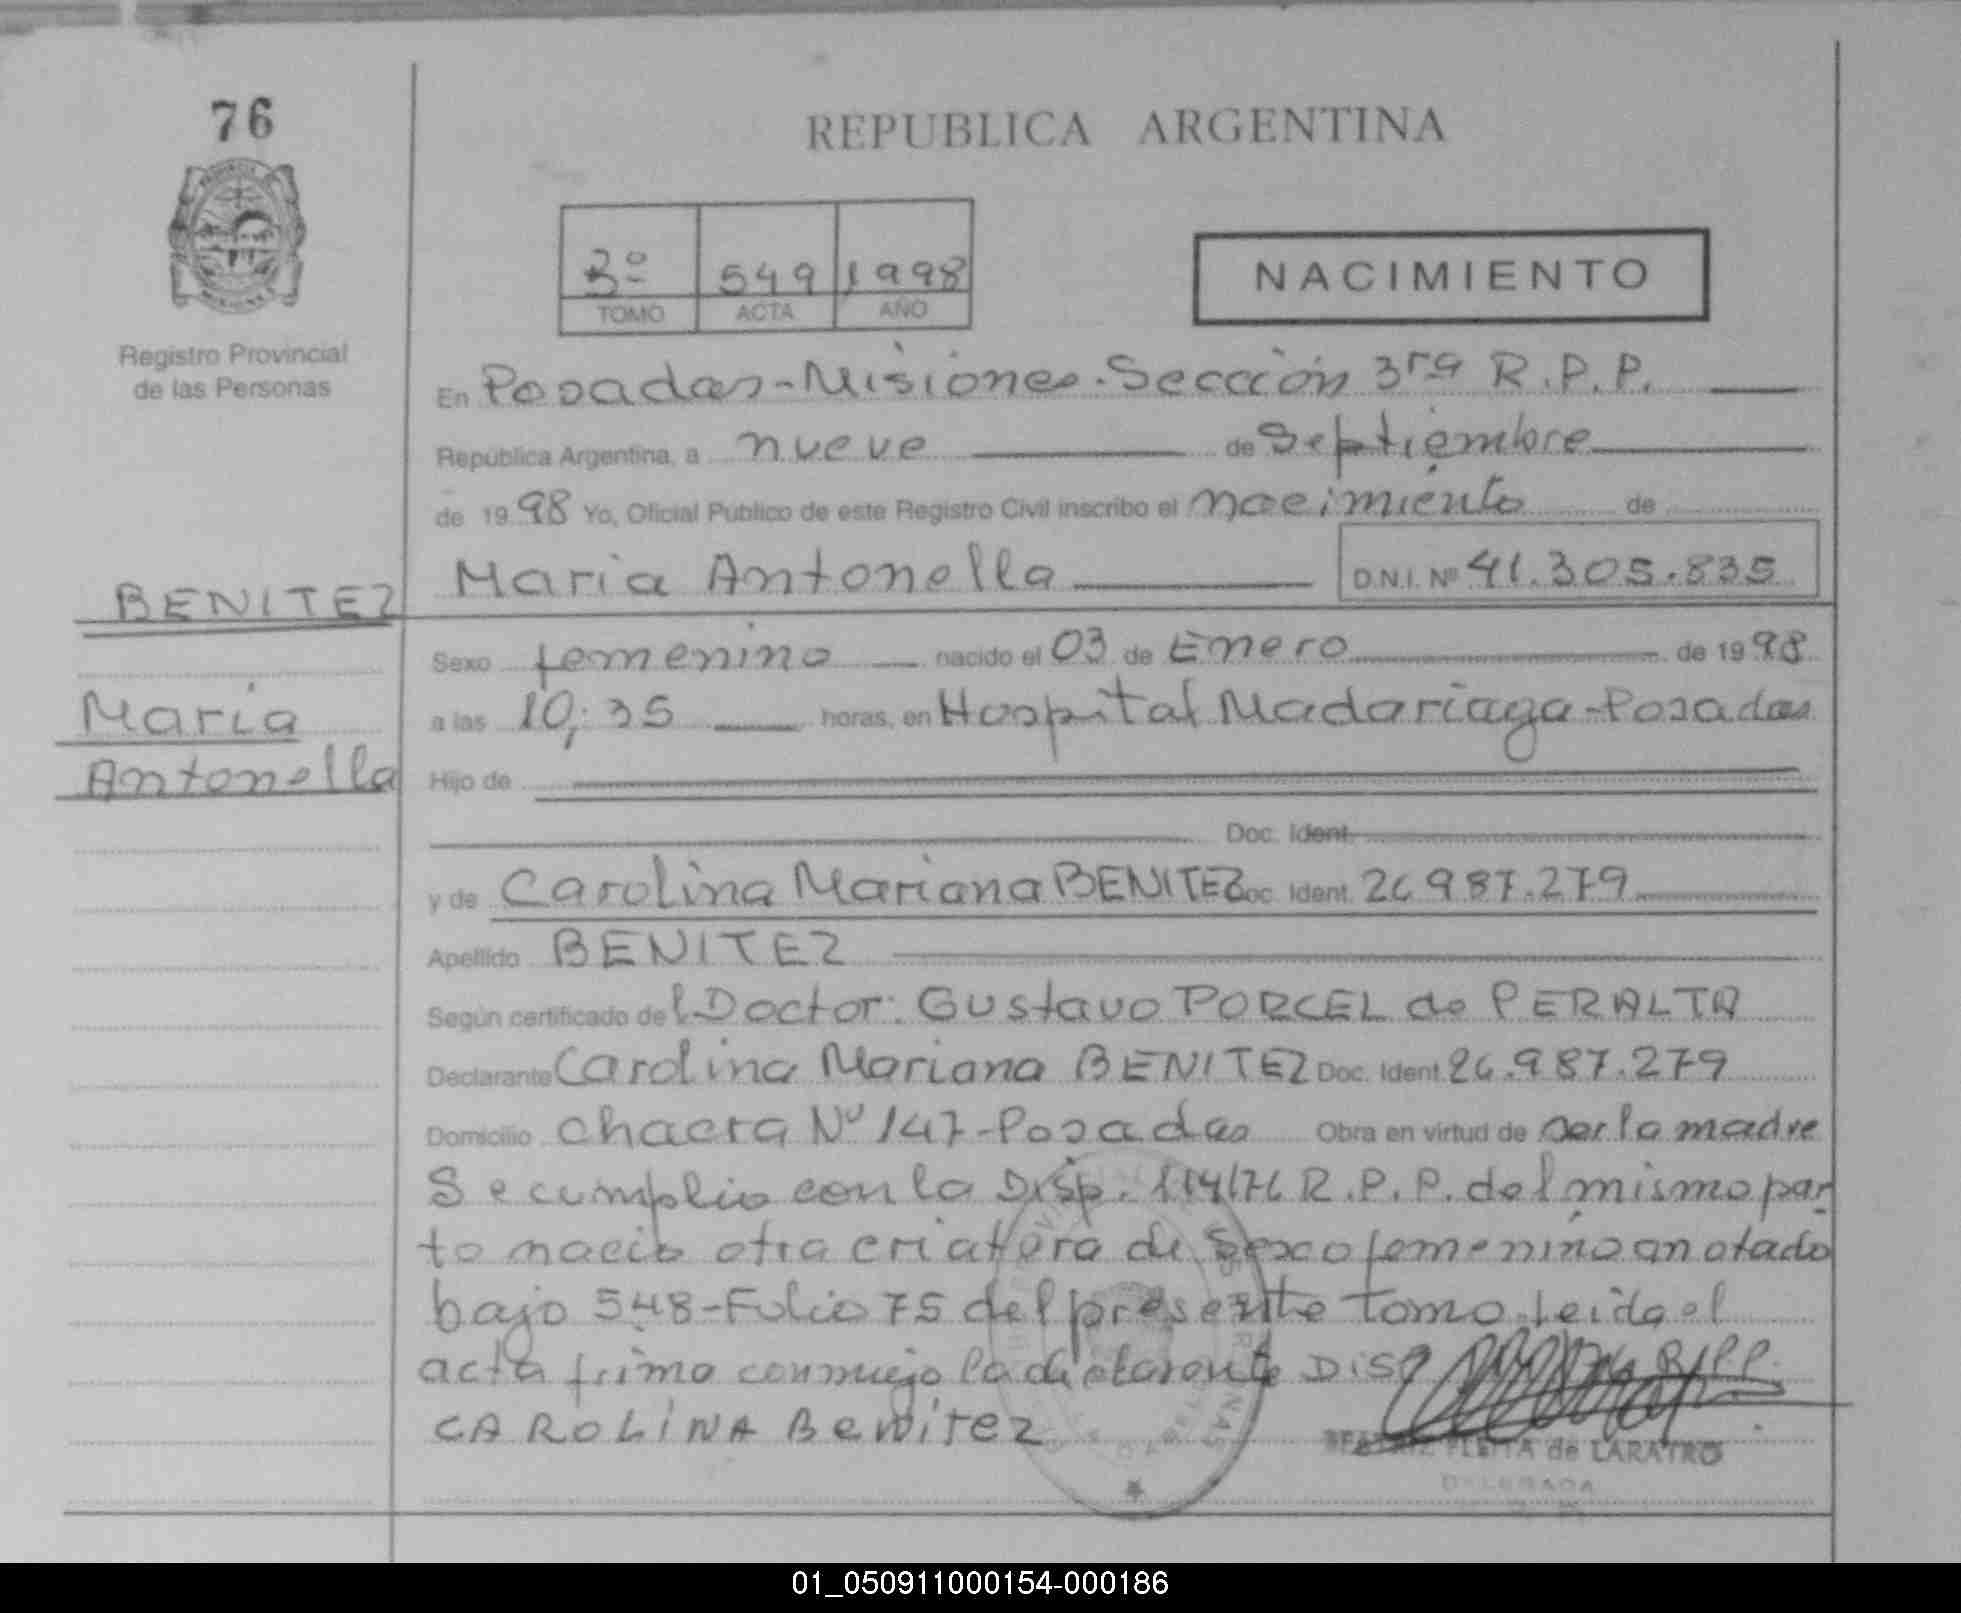 76
REPUBLICA ARGENTINA
3º 549 1998
TOMO ACTA AÑO
NACIMIENTO
Registro Provincial
de las Personas
En Posadas-Misiones-Sección 3ra R.P.P.
República Argentina, a nueve de Septiembre
de 1998 Yo, Oficial Público de este Registro Civil inscribo el nacimiento de
Maria Antonella D.N.I. Nº 41.305.835
BENITEZ
Sexo femenino nacido el 03 de Enero de 1998
Maria
a las 10,35 horas, en Hospital Madariaga-Posadas
Antonella
Hijo de
Doc. Ident.
y de Carolina Mariana BENITEZ Doc. Ident. 26987.279
Apellido BENITEZ
Según certificado del Doctor: Gustavo PORCEL de PERALTA
Declarante Carolina Mariana BENITEZ Doc. Ident. 26.987.279
Domicilio Chacra Nº 147-Posadas Obra en virtud de ser la madre
Se cumplio con la Disp. 114/76 R.P.P. del mismo par
to nacio otra criatura de sexo femenino anotado
bajo 548-Folio 75 del presente tomo. Leida el
acta firma conmigo la declarante Disp R.P.P.
CAROLINA BENITEZ
BEATRIZ FLEITA de LARATRO
DELEGADA
01_050911000154-000186